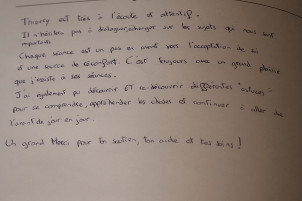 Thierry est très à l'écoute et attentif.
Il n'hésites pas à dialoguer/échanger sur les sujets qui nous sont
importants
Chaque séance est un pas en avant vers l'acceptation de soi
et une source de réconfort. C'est toujours avec un grand plaisir
que j'assiste à ses séances.
J'ai également pu découvrir et re-découvrir différentes "astuces"
pour se comprendre, appréhender les choses et continuer à aller de
l'avant de jour en jour.
Un grand Merci pour ton soutien, ton aide et tes soins !